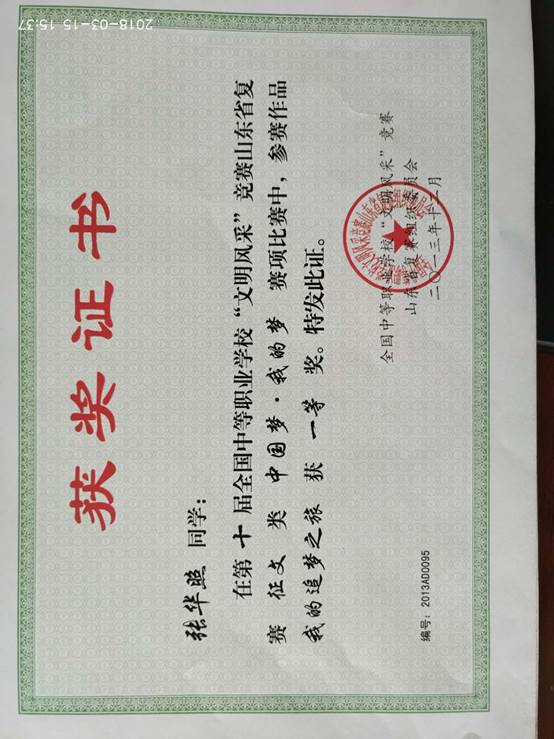 获奖证书
张华照 同学：
在第 十 届全国中等职业学校“文明风采”竞赛山东省复
赛 征文 类 中国梦·我的梦 赛项比赛中，参赛作品
我的追梦之旅 获 一等 奖。特发此证。
全国中等职业学校“文明风采”竞赛
山东省复赛组织委员会
二〇一三年十二月
编号：2013AD0095
2018-03-15 15:37